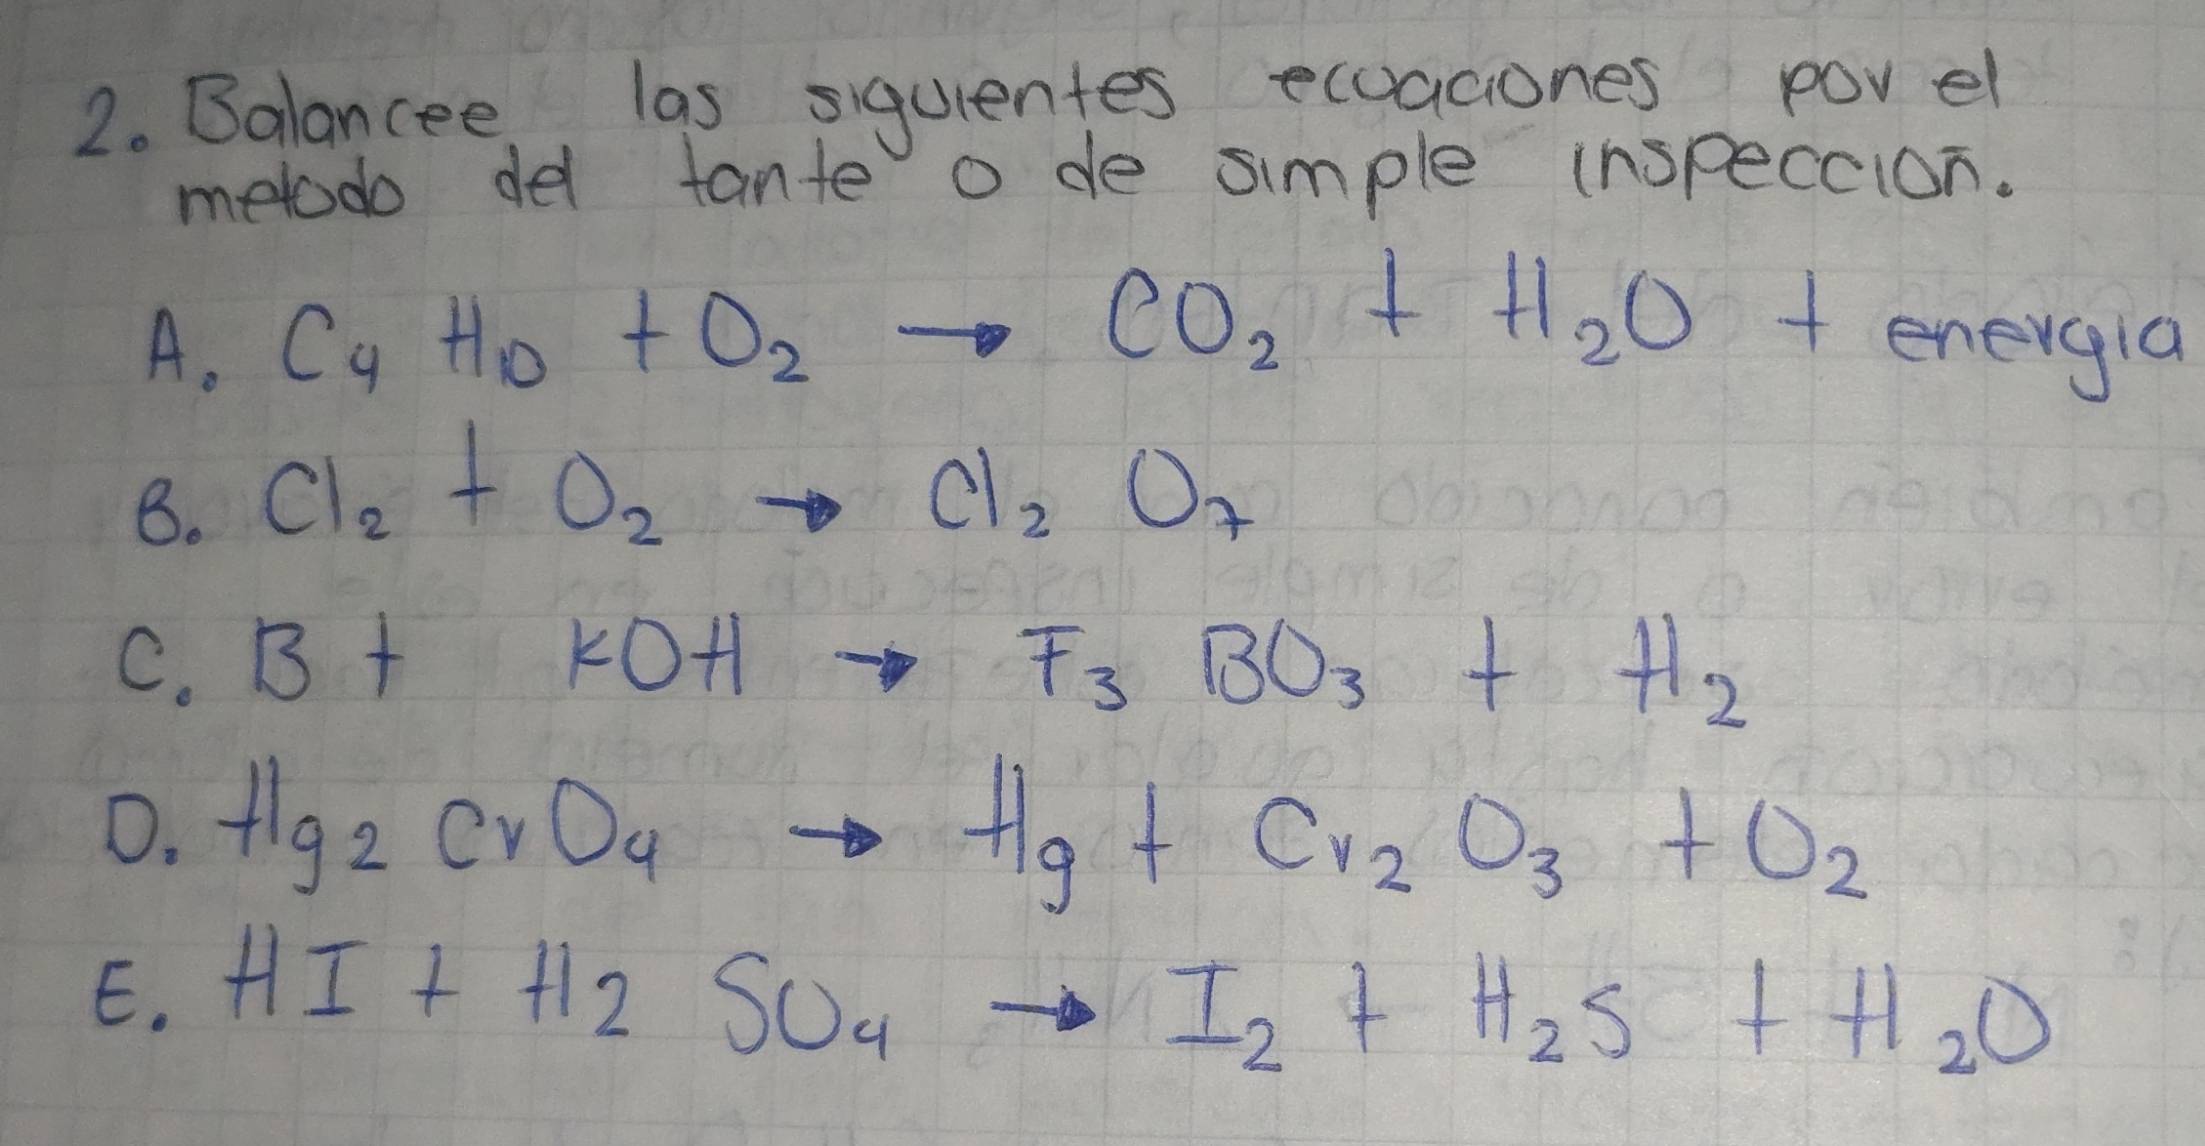 2. Balancee las siguientes ecuaciones por el
metodo del tante o de simple inspeccion.
A. C₄ H₁₀ + O₂ → CO₂ + H₂O + energia
B. Cl₂ + O₂ → Cl₂ O₇
C. B + KOH → F₃ BO₃ + H₂
D. Hg₂ CrO₄ → Hg + Cr₂ O₃ + O₂
E. HI + H₂ SO₄ → I₂ + H₂S + H₂O